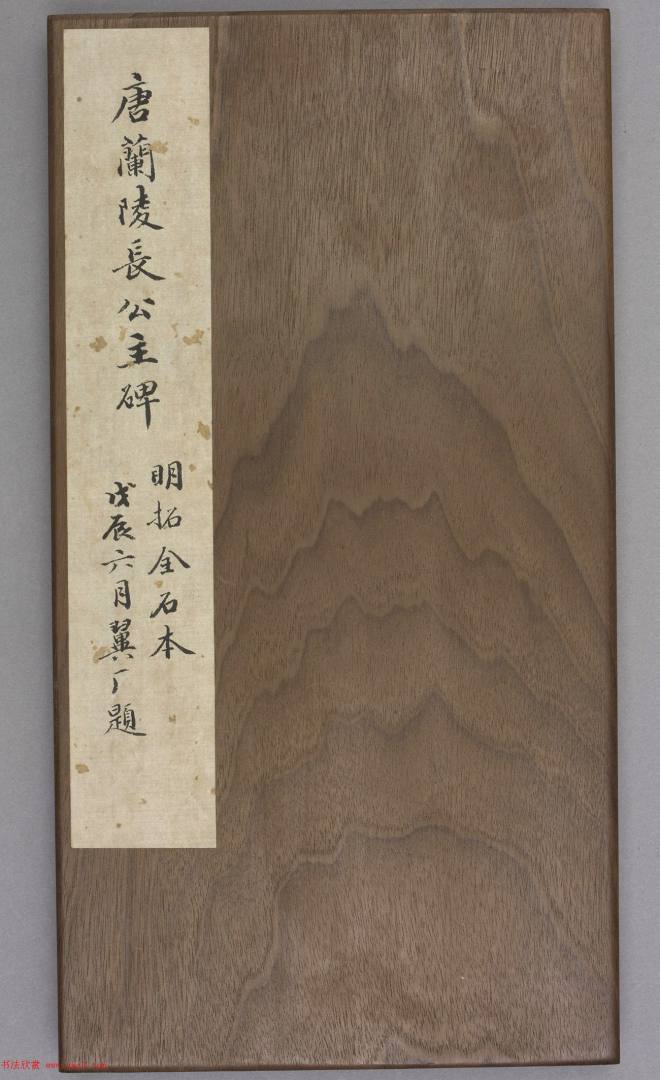 唐蘭陵長公主碑
明拓全石本
戊辰六月翼厂題
书法欣赏